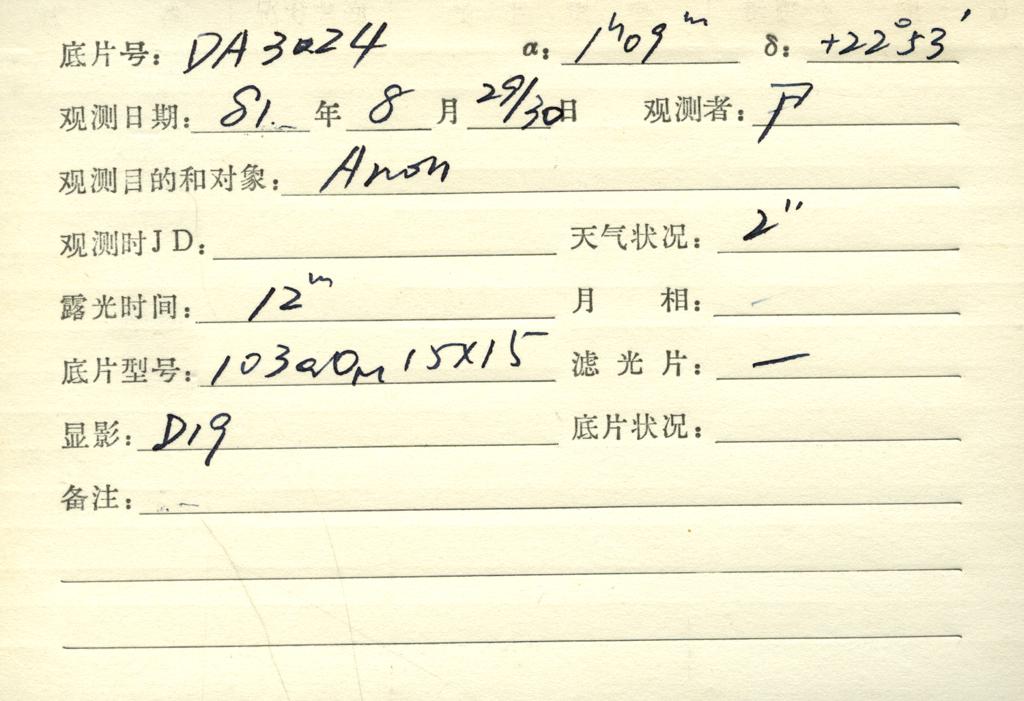 底片号: DA3024 α: 1ʰ09ᵐ δ: +22°53′
观测日期: 81. 年 8 月 29/30日 观测者:
观测目的和对象: Anon
观测时JD: 天气状况: 2″
露光时间: 12ᵐ 月 相:
底片型号: 103aO 15X15 滤光片: —
显影: D19 底片状况:
备注: